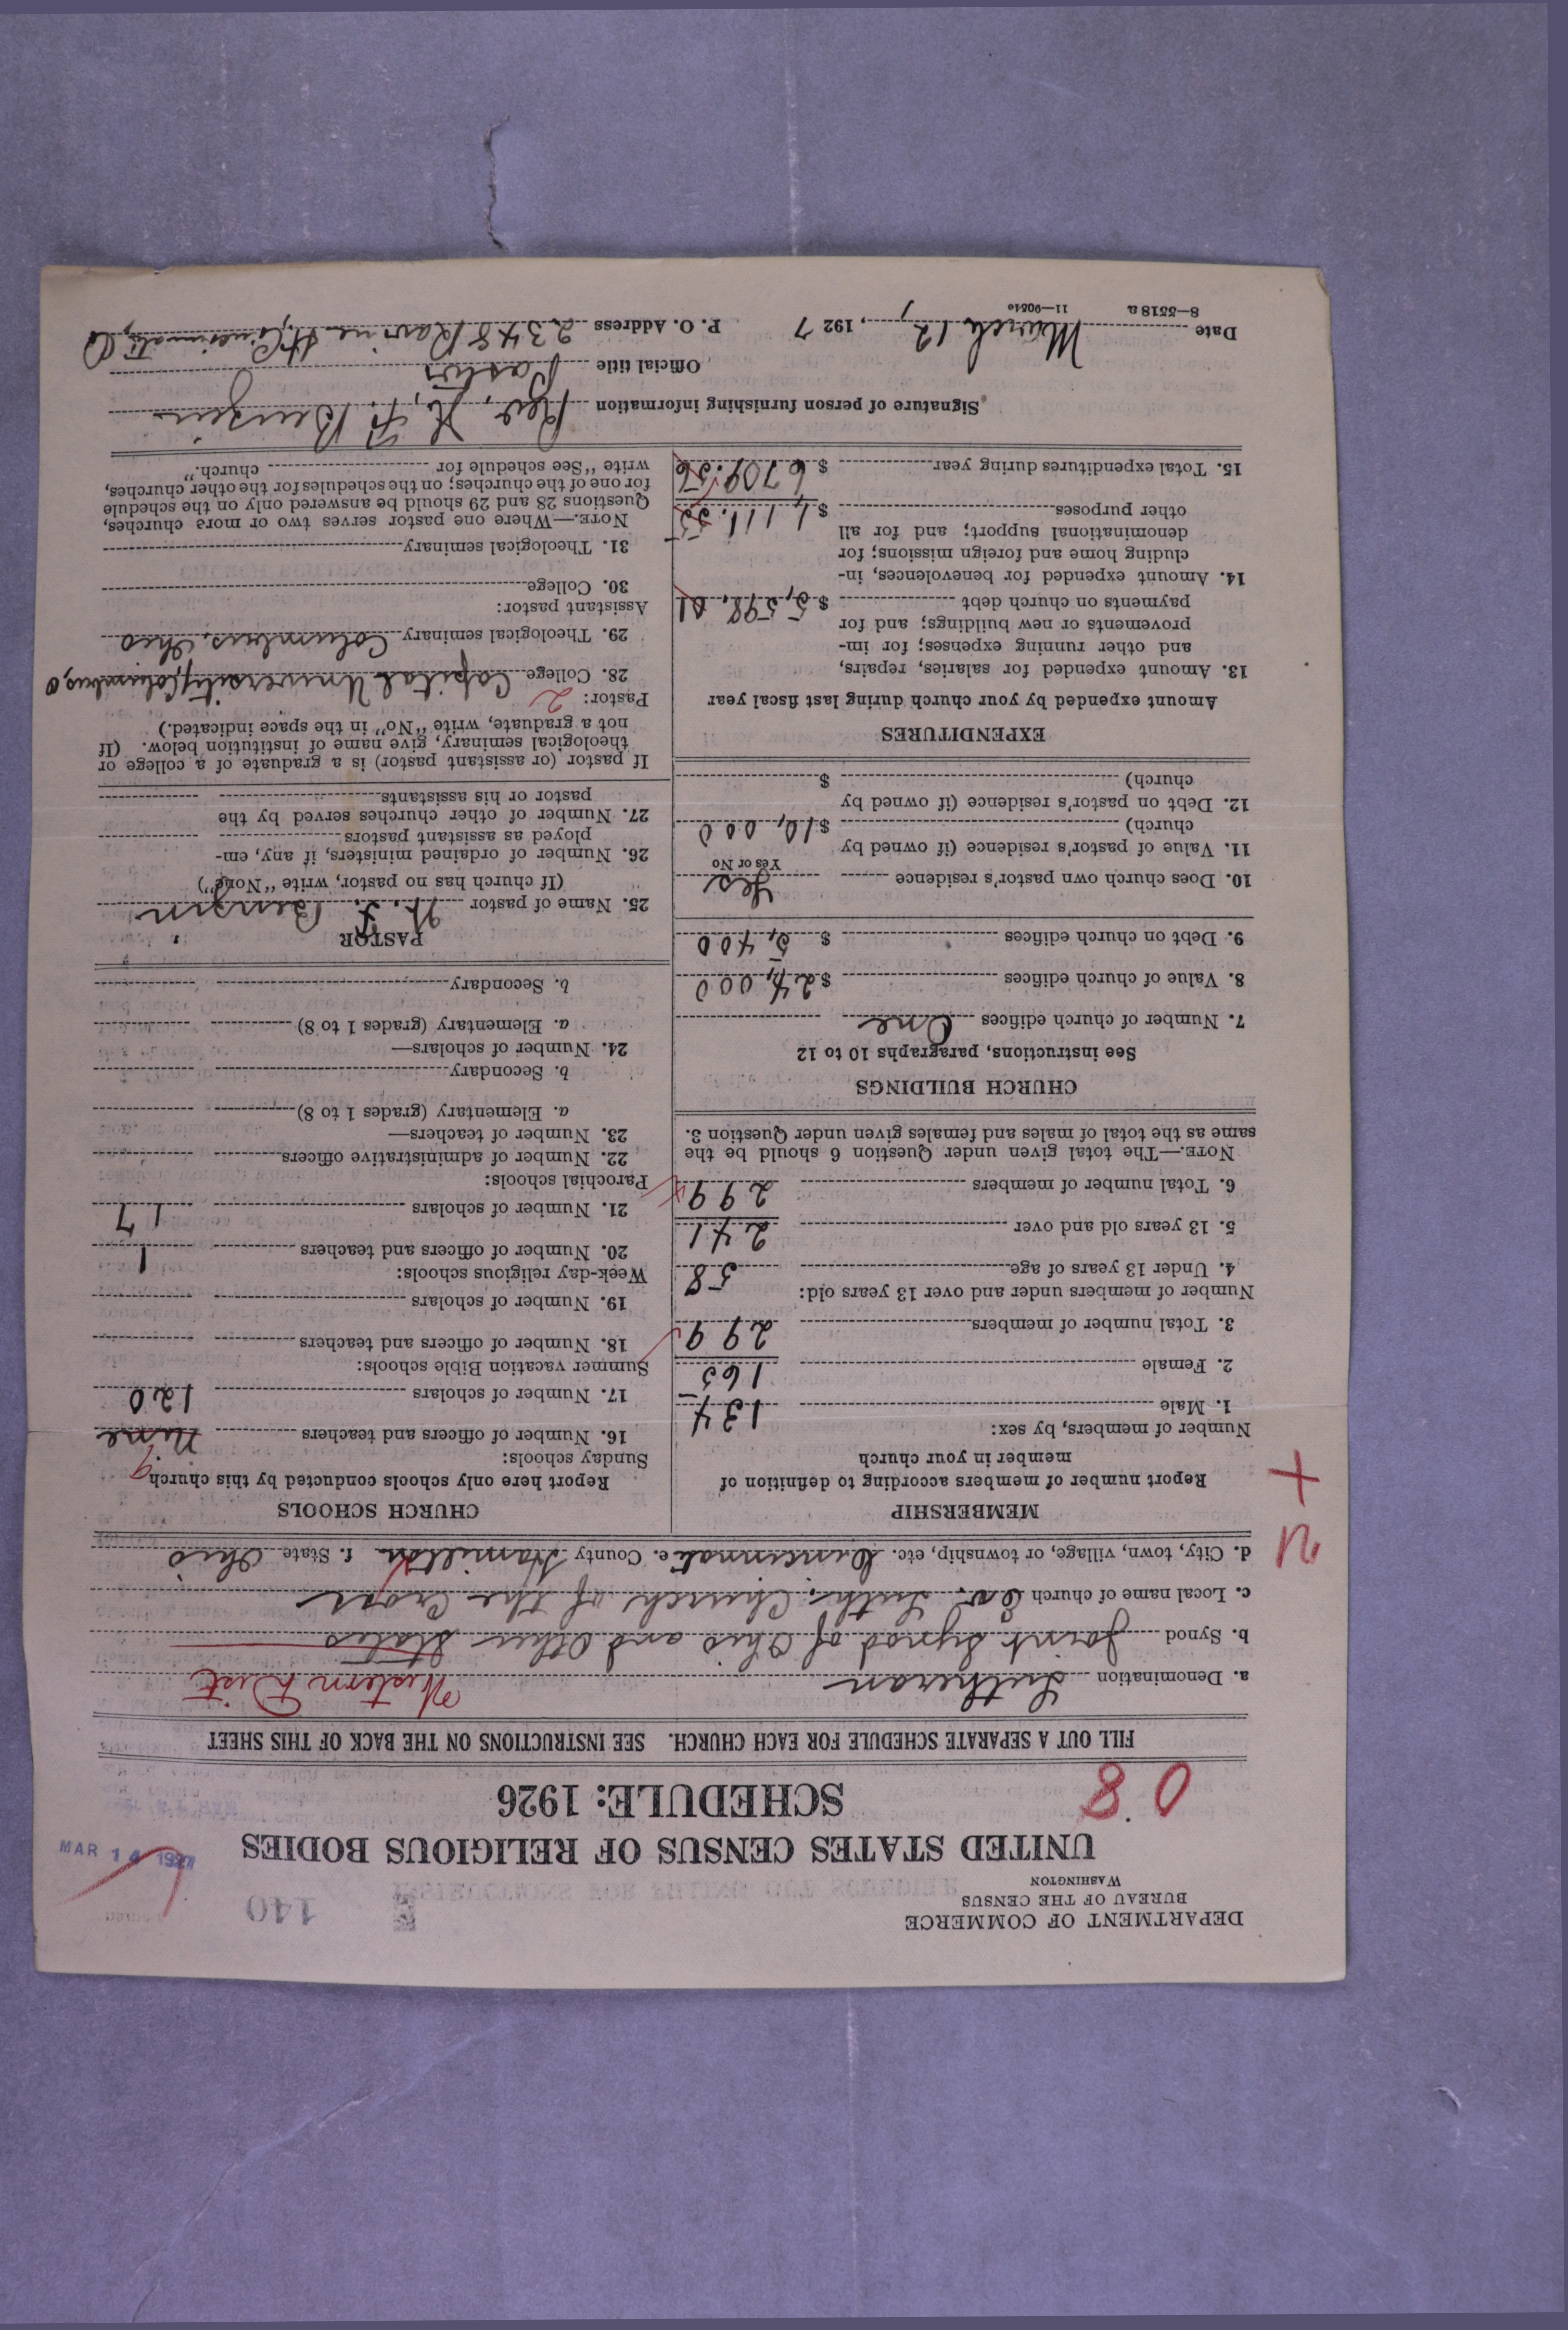 DEPARTMENT OF COMMERCE
BUREAU OF THE CENSUS
WASHINGTON
140
MAR 14 1927
UNITED STATES CENSUS OF RELIGIOUS BODIES
SCHEDULE: 1926
08
FILL OUT A SEPARATE SCHEDULE FOR EACH CHURCH. SEE INSTRUCTIONS ON THE BACK OF THIS SHEET
a. Denomination Lutheran Western Dist
b. Synod Joint Synod of Ohio and Other States
c. Local name of church Ev. Luth. Church of the Cross
d. City, town, village, or township, etc. Cincinnati e. County Hamilton f. State Ohio
MEMBERSHIP
Report number of members according to definition of
member in your church
Number of members, by sex:
1. Male 134
2. Female 165
3. Total number of members 299
Number of members under and over 13 years old:
4. Under 13 years of age 58
5. 13 years old and over 241
6. Total number of members 299
NOTE.—The total given under Question 6 should be the
same as the total of males and females given under Question 3.
CHURCH BUILDINGS
See instructions, paragraphs 10 to 12
7. Number of church edifices One
8. Value of church edifices $24,000
9. Debt on church edifices $5,400
10. Does church own pastor's residence Yes
Yes or No
11. Value of pastor's residence (if owned by
church) $10,000
12. Debt on pastor's residence (if owned by
church) $
EXPENDITURES
Amount expended by your church during last fiscal year
13. Amount expended for salaries, repairs,
and other running expenses; for im-
provements or new buildings; and for
payments on church debt $5,598.01
14. Amount expended for benevolences, in-
cluding home and foreign missions; for
denominational support; and for all
other purposes $1,111.55
15. Total expenditures during year $6709.56
CHURCH SCHOOLS
Report here only schools conducted by this church
Sunday schools: 9
16. Number of officers and teachers Nine
17. Number of scholars 120
Summer vacation Bible schools:
18. Number of officers and teachers
19. Number of scholars
Week-day religious schools:
20. Number of officers and teachers 1
21. Number of scholars 17
Parochial schools:
22. Number of administrative officers
23. Number of teachers—
a. Elementary (grades 1 to 8)
b. Secondary
24. Number of scholars—
a. Elementary (grades 1 to 8)
b. Secondary
PASTOR
25. Name of pastor H. F. Bengin
(If church has no pastor, write "None")
26. Number of ordained ministers, if any, em-
ployed as assistant pastors
27. Number of other churches served by the
pastor or his assistants
If pastor (or assistant pastor) is a graduate of a college or
theological seminary, give name of institution below. (If
not a graduate, write "No" in the space indicated.)
Pastor: 2
28. College Capital University, Columbus, O
29. Theological seminary Columbus, Ohio
Assistant pastor:
30. College
31. Theological seminary
NOTE.—Where one pastor serves two or more churches,
Questions 28 and 29 should be answered only on the schedule
for one of the churches; on the schedules for the other churches,
write "See schedule for church."
Signature of person furnishing information Rev. H. F. Bengin
Official title Pastor
Date March 12, 1927 P. O. Address 2348 Ravine St, Cincinnati, O
8—5518 a 11—9051